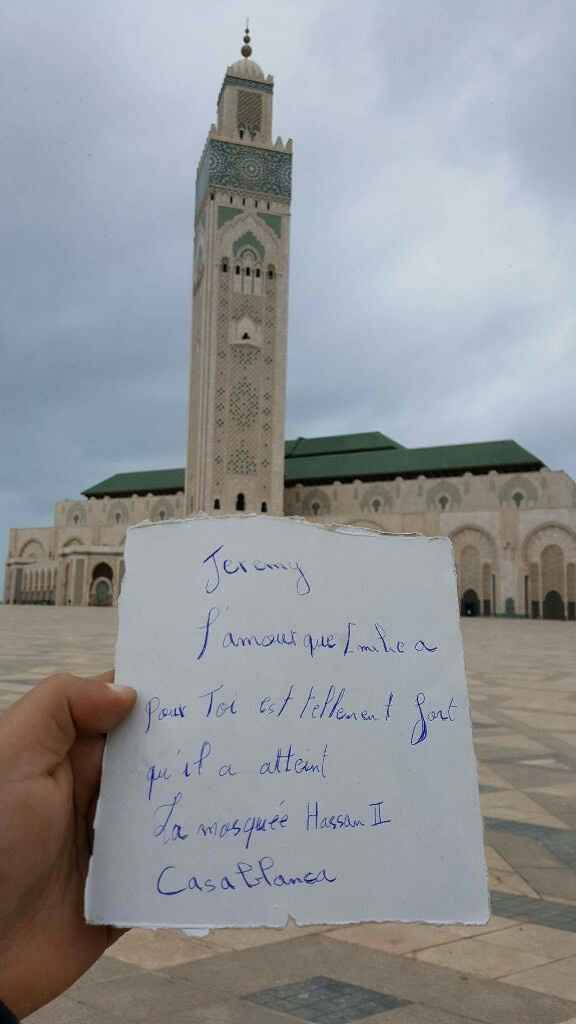 Jeremy
l'amour que Emilie a
pour Toi est tellement fort
qu'il a atteint
La mosquée Hassan II
Casablanca